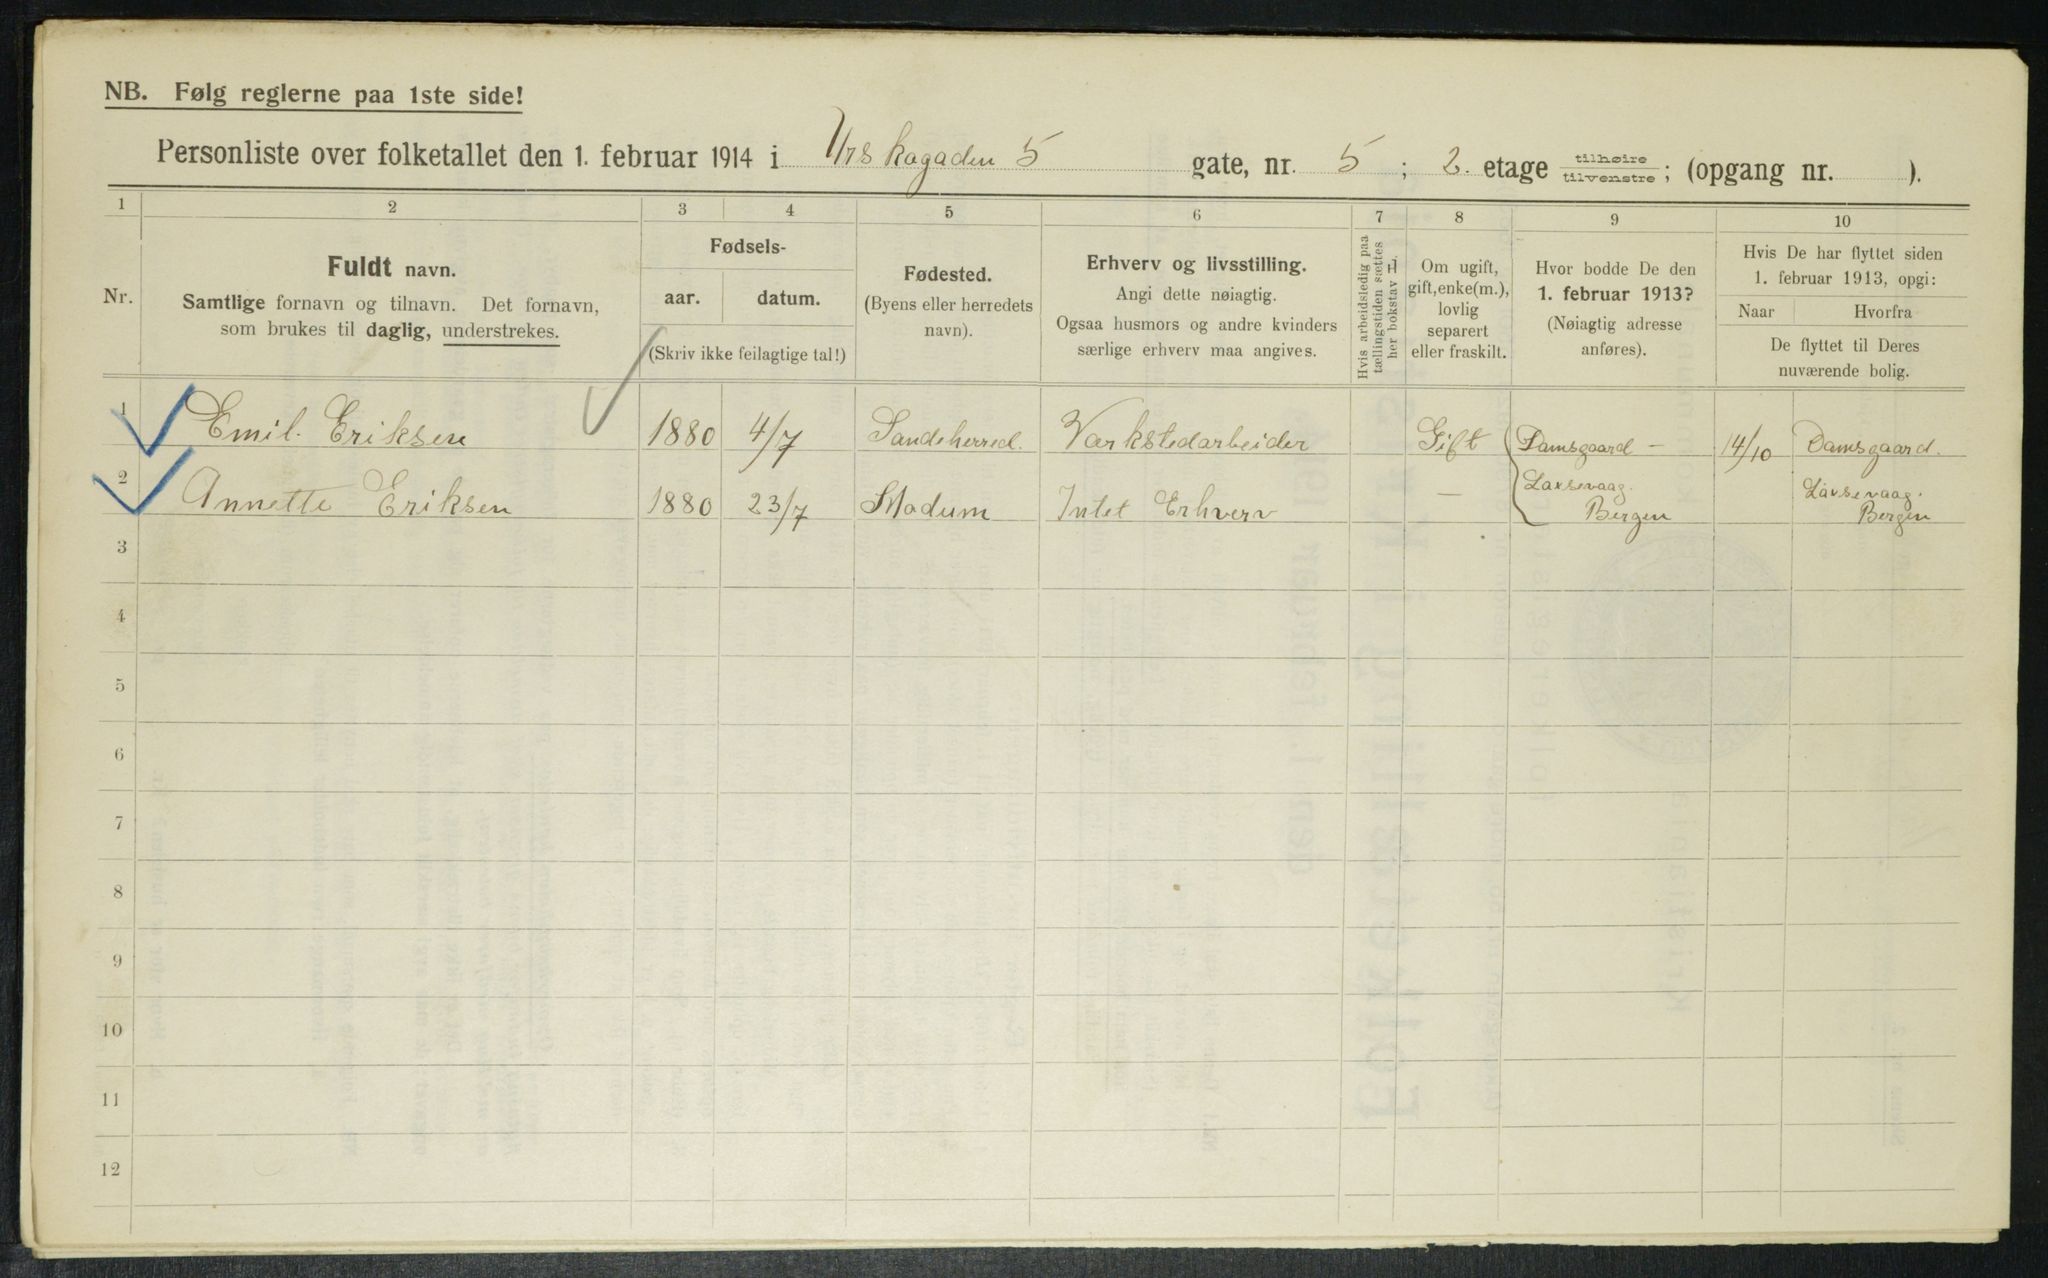 NB. Følg reglerne paa 1ste side!
Personliste over folketallet den 1. februar 1914 i Urskogaden 5 gate, nr. 5 ; 2. etage tilhøire tilvenstre ; (opgang nr. ).
1 2 3 4 5 6 7 8 9 10
Nr.
Fuldt navn.
Samtlige fornavn og tilnavn. Det fornavn,
som brukes til daglig, understrekes.
Fødsels-
aar. datum.
(Skriv ikke feilagtige tal!)
Fødested.
(Byens eller herredets
navn).
Erhverv og livsstilling.
Angi dette nøiagtig.
Ogsaa husmors og andre kvinders
særlige erhverv maa angives.
Hvis arbeidsledig paa
tællingstiden sættes
her bokstav L
Om ugift,
gift, enke(m.),
lovlig
separert
eller fraskilt.
Hvor bodde De den
1. februar 1913?
(Nøiagtig adresse
anføres).
Hvis De har flyttet siden
1. februar 1913, opgi:
Naar Hvorfra
De flyttet til Deres
nuværende bolig.
1 Emil Eriksen 1880 4/7 Sandeherred. Værkstedarbeider Gift Damsgaard – 14/10 Damsgaard.
2 Annette Eriksen 1880 23/7 Modum Intet Erhverv – Laxsevaag. Bergen Laxsevaag. Bergen
3
4
5
6
7
8
9
10
11
12